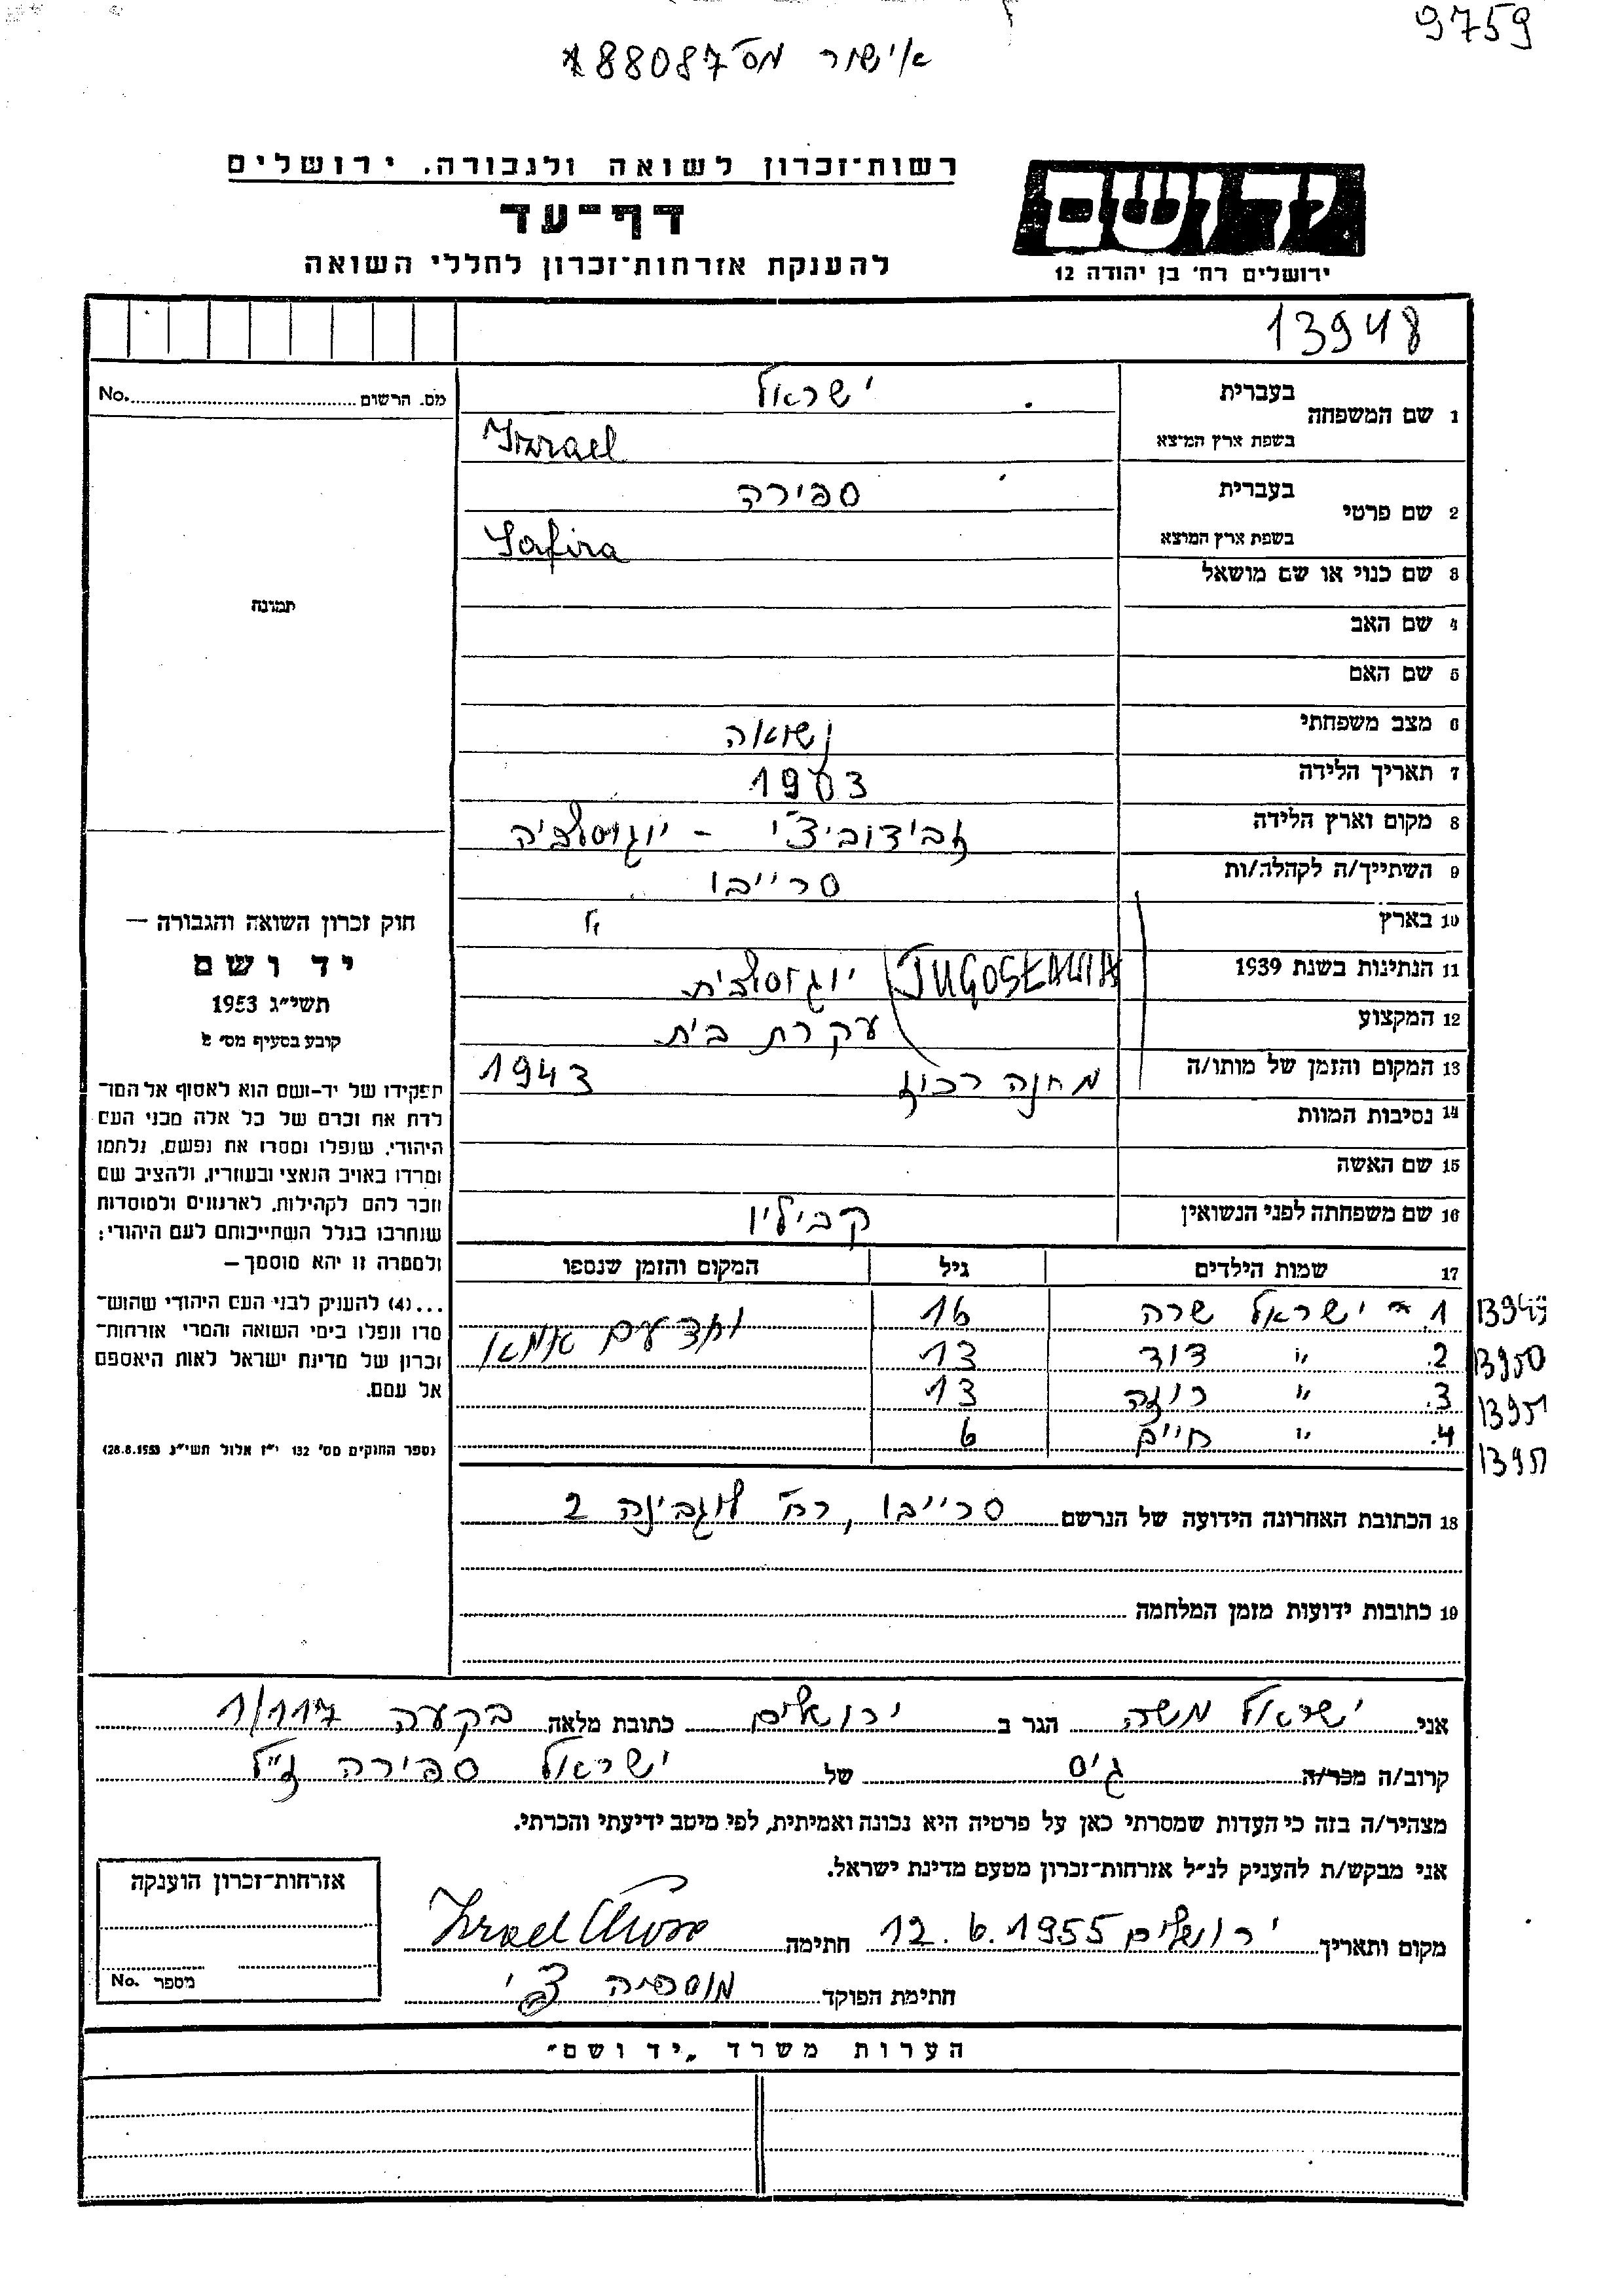 9759
אישור מס 88087*
רשות־זכרון לשואה ולגבורה. ירושלים
דף־עד
להענקת אזרחות־זכרון לחללי השואה
ידושם
ירושלים רח׳ בן יהודה 12
13948
מס. הרשום No.
1 שם המשפחה בעברית ישראל
בשפת ארץ המוצא Izrael
2 שם פרטי בעברית ספירה
בשפת ארץ המוצא Safira
3 שם כנוי או שם מושאל
תמונה
4 שם האב
5 שם האם
6 מצב משפחתי נשואה
7 תאריך הלידה 1903
8 מקום וארץ הלידה זבידוביצ׳י - יוגוסלביה
9 השתייך/ה לקהלה/ות סרייבו
10 בארץ "
11 הנתינות בשנת 1939 JUGOSŁAWIA יוגוסלבית
12 המקצוע עקרת בית
13 המקום והזמן של מותו/ה 1943
14 נסיבות המוות
15 שם האשה
16 שם משפחתה לפני הנשואין קביליו
חוק זכרון השואה והגבורה —
יד ושם
תשי״ג 1953
קובע בסעיף מס׳ 2
תפקידו של יד-ושם הוא לאסוף אל המו־
לדת את זכרם של כל אלה מבני העם
היהודי, שנפלו ומסרו את נפשם, נלחמו
ומרדו באויב הנאצי ובעוזריו, ולהציב שם
וזכר להם לקהילות, לארגונים ולמוסדות
שנחרבו בגלל השתייכותם לעם היהודי;
ולמטרה זו יהא מוסמך —
...(4) להעניק לבני העם היהודי שהוש־
מדו ונפלו בימי השואה והמרי אזרחות־
זכרון של מדינת ישראל לאות היאספם
אל עמם.
(ספר החוקים מס׳ 132 י״ז אלול תשי״ג 28.8.1953)
17 שמות הילדים גיל המקום והזמן שנספו
1. ישראל שרה 16
2. " דוד 13 13950
3. " רוזה 13 13951
4. " חיים 6
18 הכתובת האחרונה הידועה של הנרשם סרייבו, רח׳ לוגבינה 2
19 כתובות ידועות מזמן המלחמה
אני ישראל משה הגר ב ירושלים כתובת מלאה בקעה 1/117
קרוב/ה מכר/ה גיס של ישראל ספירה ז״ל
מצהיר/ה בזה כי העדות שמסרתי כאן על פרטיה היא נכונה ואמיתית, לפי מיטב ידיעתי והכרתי.
אני מבקש/ת להעניק לנ״ל אזרחות־זכרון מטעם מדינת ישראל.
מקום ותאריך ירושלים 12.6.1955 חתימה Izrael
חתימת הפוקד
אזרחות־זכרון הוענקה
מספר No.
הערות משרד „יד ושם״